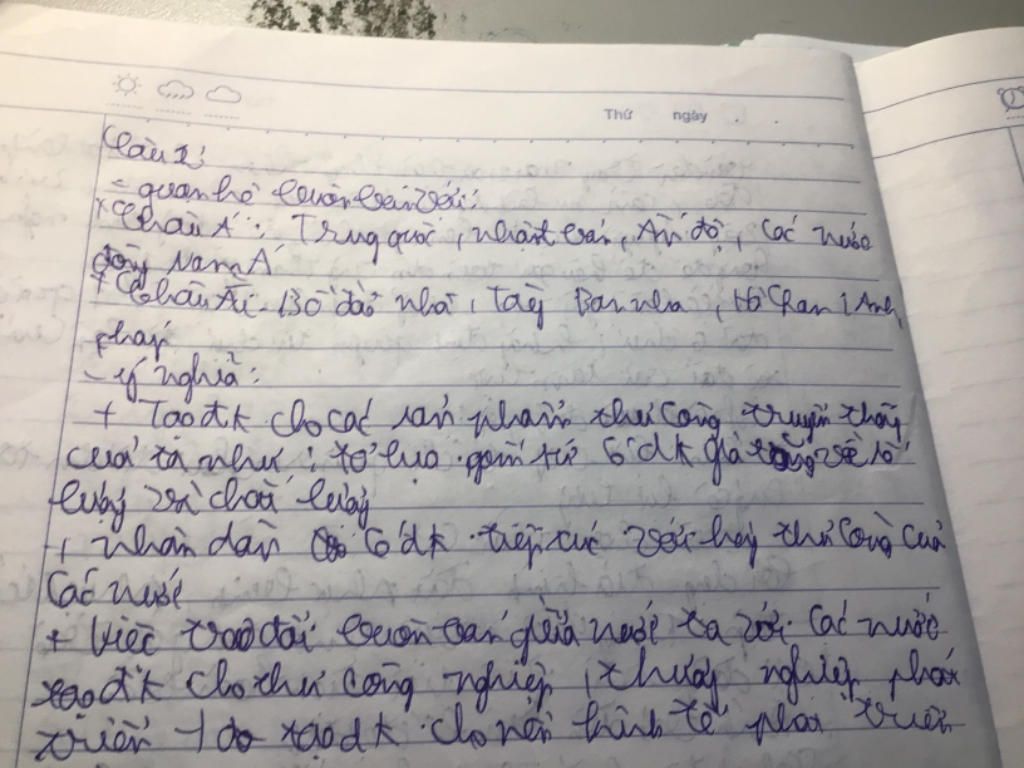 Thứ ngày
Câu 1:
- quan hệ buôn bán với:
+ Châu Á: Trung quốc, nhật bản, Ấn độ, các nước
đông Nam Á
+ Châu Âu: Bồ đào nha, Tây Ban nha, Hà Lan, Anh,
pháp
- ý nghĩa:
+ Tạo đk cho các sản phẩm thủ công truyền thống
của ta như: tơ lụa, gốm sứ có đk gia tăng về số
lượng và chất lượng
+ nhân dân có đk tiếp xúc với hàng thủ công của
các nước
+ Việc trao đổi buôn bán giữa nước ta với các nước
tạo đk cho thủ công nghiệp, thương nghiệp phát
triển do tạo đk cho nền kinh tế phát triển